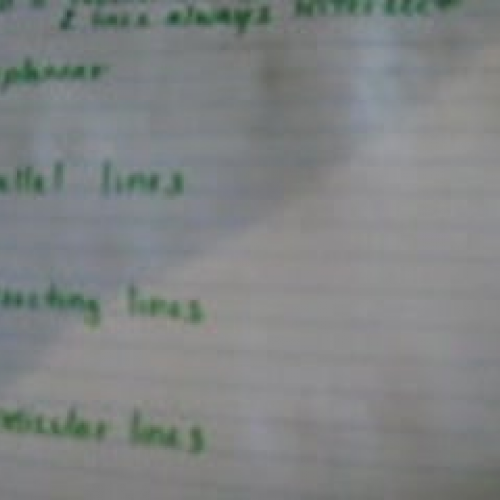 2 lines always intersect
planar
allel lines
secting lines
dicular lines